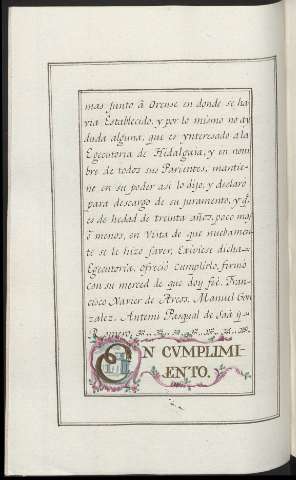 mas junto â Orense en donde se ha
via Establecido, y por lo mismo no ay
duda alguna, que es ynteresado â la
Egecutoria de Hidalgaia, y en nom
bre de todos sus Parientes, mantie-
ne en su poder asi lo dijo, y declaro
para descargo de su juramento, y q.
es de hedad de treinta años, poco mas
ô menos, en Vista de que nuebamen
te se le hizo saver, Exiviese dicha
Egecutoria, ofreció Cumplirlo, firmo
con su merced de que doy feê. Fran-
cisco Xavier de Arcos. Manuel Gon
zalez. Antemi Pasqual de Saâ y
Romero.
EN CVMPLIMI-
ENTO.